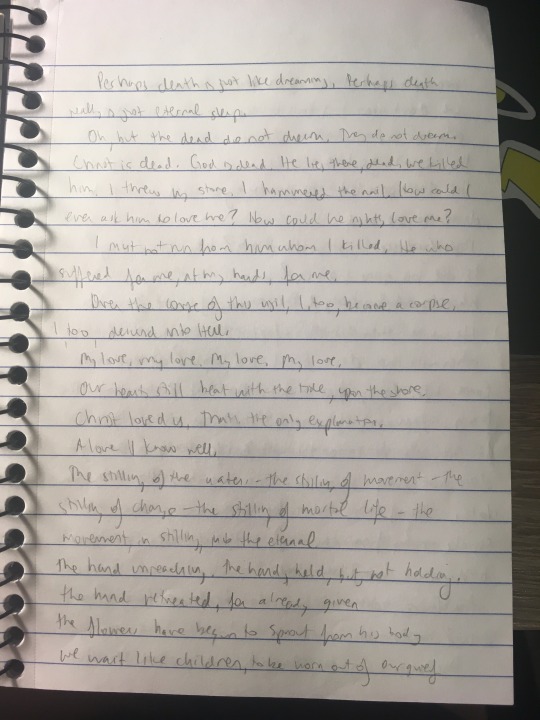 Perhaps death is just like dreaming, Perhaps death
really is just eternal sleep.
Oh, but the dead do not dream. They do not dream.
Christ is dead. God is dead. He lies there, dead, we killed
him, I threw my stone, I hammered the nail. How could I
ever ask him to love me? How could he rightly love me?
I must not run from him whom I killed, He who
suffered for me, at my hands, for me.
Over the course of this vigil, I, too, became a corpse,
I too, descend into Hell.
My love, my love, My love, My love,
Our hearts still beat with the tide, upon the shore.
Christ loved us, That's the only explanation.
A love I know well,
The stilling of the water - the stilling of movement - the
stilling of change - the stilling of mortal life - the
movement, in stilling, into the eternal
The hand unreaching. The hand, held, but not holding.
the hand retreated, for already given
the flowers have begun to sprout from his body
we wait like children, to be born out of our grief